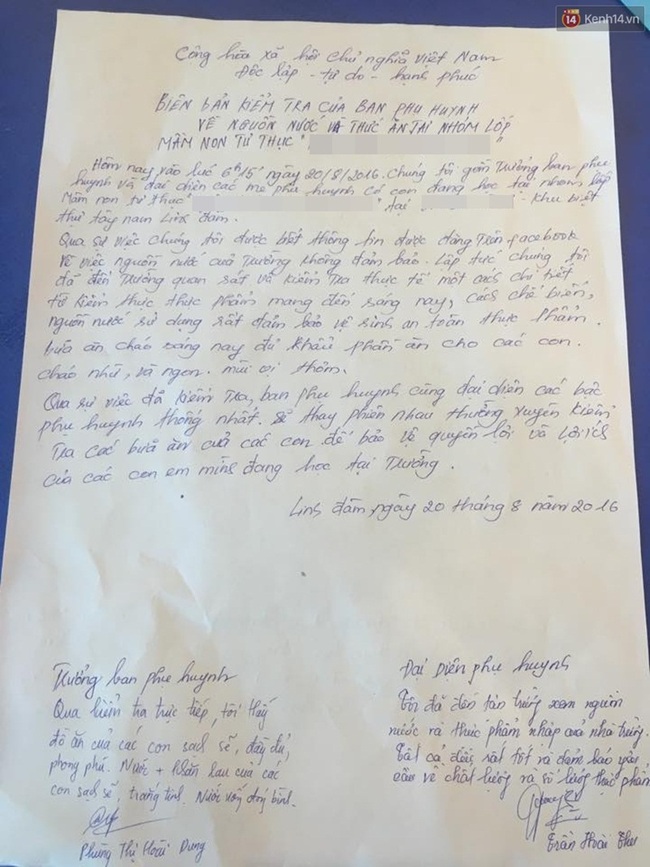 14 Kenh14.vn
Cộng hòa xã hội chủ nghĩa Việt Nam
Độc lập - tự do - hạnh phúc
BIÊN BẢN KIỂM TRA CỦA BAN PHỤ HUYNH
VỀ NGUỒN NƯỚC VÀ THỨC ĂN TẠI NHÓM LỚP
MẦM NON TƯ THỤC "
Hôm nay vào lúc 6h15' ngày 20/8/2016. Chúng tôi gồm Trưởng ban phụ
huynh và đại diện các mẹ phụ huynh có con đang học tại nhóm lớp
Mầm non tư thục " " tại - khu biệt
thự tây nam Linh Đàm.
Qua sự việc chúng tôi được biết thông tin được đăng trên facebook
Về việc nguồn nước của trường không đảm bảo. Lập tức chúng tôi
đã đến trường quan sát và kiểm tra thực tế một cách chi tiết
từ kiểm thực thực phẩm mang đến sáng nay, cách chế biến,
nguồn nước sử dụng rất đảm bảo vệ sinh an toàn thực phẩm.
bữa ăn cháo sáng nay đủ khẩu phần ăn cho các con.
cháo nhừ, và ngon. mùi vị thơm.
Qua sự việc đã kiểm tra, ban phụ huynh cùng đại diện các bậc
phụ huynh thống nhất. sẽ thay phiên nhau thường xuyên kiểm
tra các bữa ăn của các con để bảo vệ quyền lợi và lợi ích
của các con em mình đang học tại trường.
Linh đàm, ngày 20 tháng 8 năm 2016
Trưởng ban phụ huynh
Qua kiểm tra trực tiếp, tôi thấy
đồ ăn của các con sạch sẽ, đầy đủ,
phong phú. Nước + khăn lau của các
con sạch sẽ, trắng tinh. Nước uống đóng bình.
Phùng Thị Hoài Dung
Đại Diện phụ huynh
Tôi đã đến tận trường xem nguồn
nước và thực phẩm nhập của nhà trường.
Tất cả đều rất tốt và đảm bảo yêu
cầu về chất lượng và số lượng thực phẩm
Trần Hoài Thu